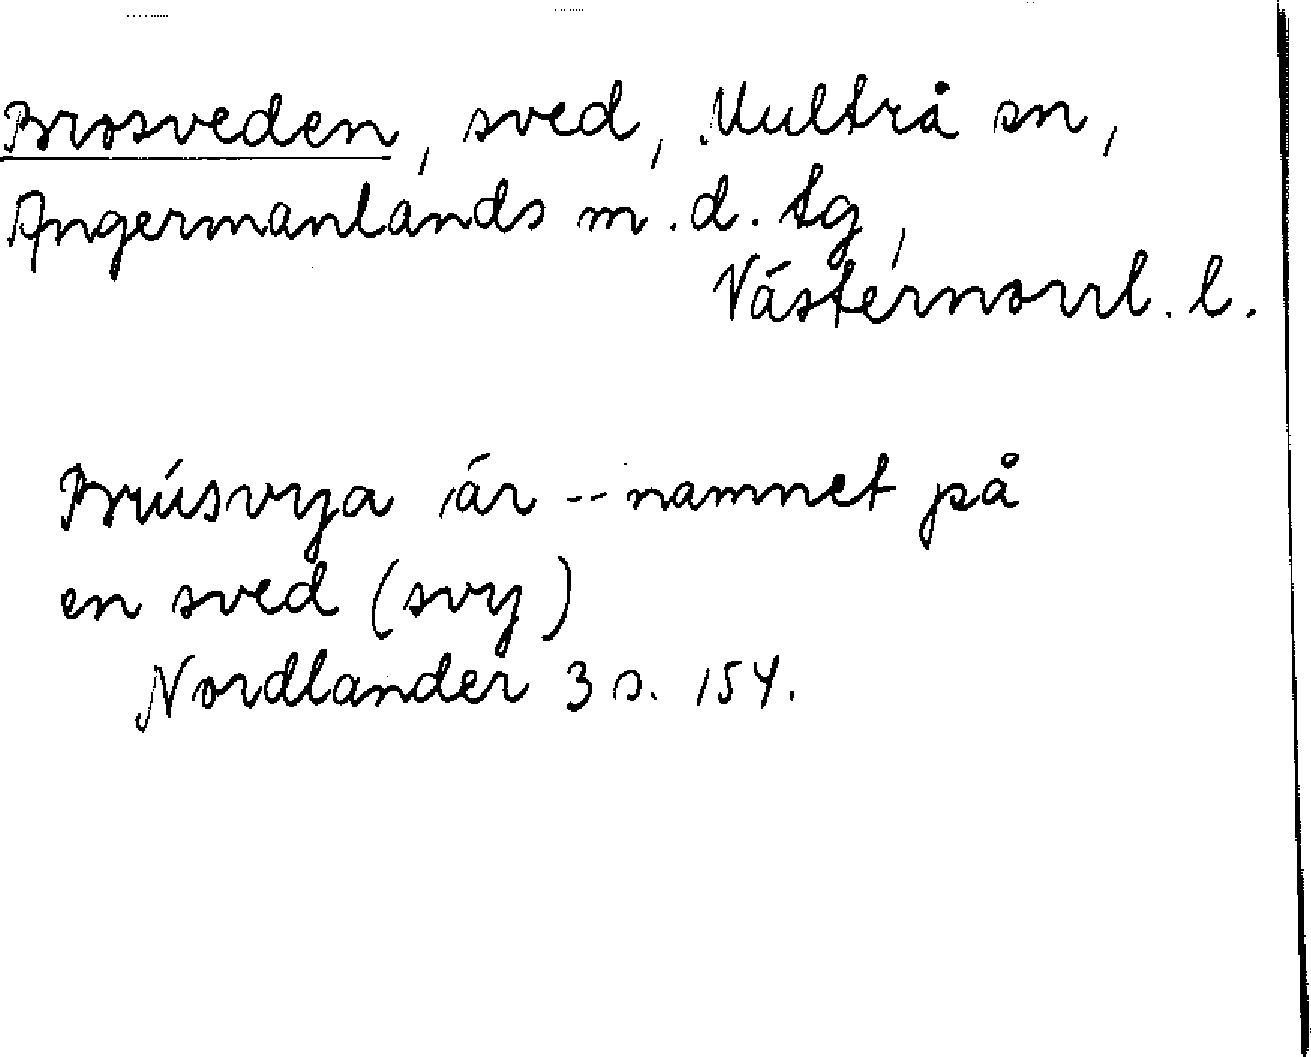 Brosveden, sved, Multrå sn,
Ångermanlands m. d. tg,
Västernorrl. l.
Brúsvya är -- namnet på
en sved (svy)
Nordlander 3 s. 154.